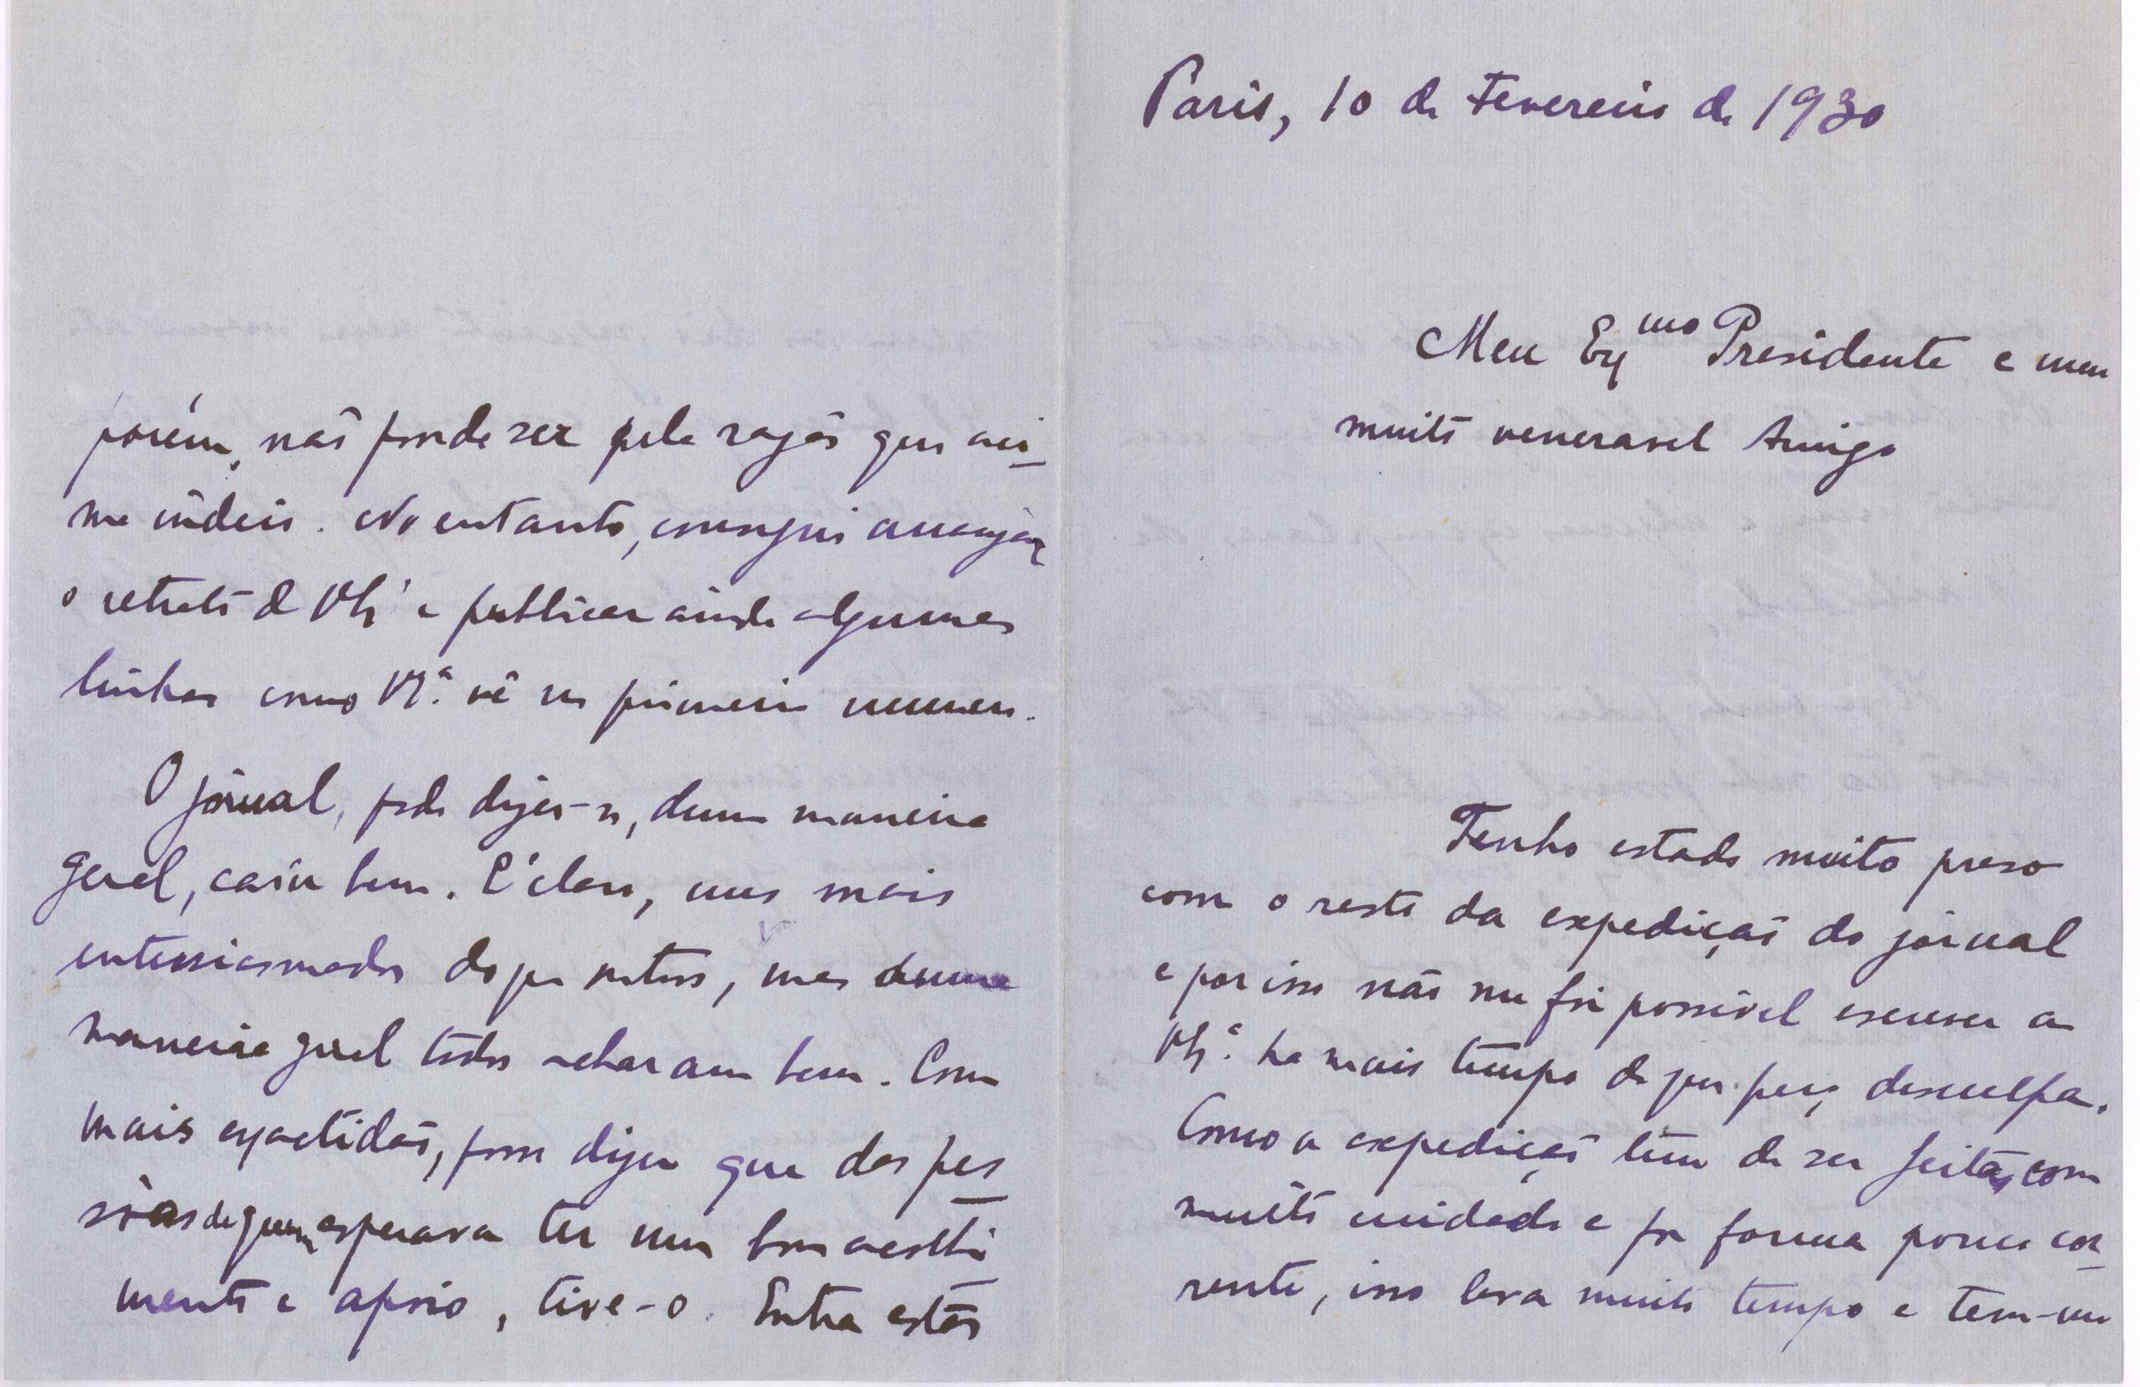 Paris, 10 de Fevereiro de 1930
Meu Exmo Presidente e meu
muito veneravel Amigo
Tenho estado muito preso
com o resto da expedição do jornal
e por isso não me foi possivel escrever a
V. Exª. ha mais tempo do que peço desculpa.
Como a expedição tem de ser feita, com
muito cuidado e por forma pouco cor-
rente, isso leva muito tempo e tem-me
porém, não poude ser pela razão que aci-
ma indico. No entanto, consegui arranjar
o retrato de V. Exª e publicar ainda algumas
linhas como V. Exª. vê no primeiro numero.
O jornal, pode dizer-se, duma maneira
geral, caíu bem. E' claro, uns mais
entusiasmados do que outros, mas duma
maneira geral todos acharam bem. Com
mais exactidão, posso dizer que das pes-
sôas de quem esperava ter um bom acolhi-
mento e apoio, tive-o. Entre estas